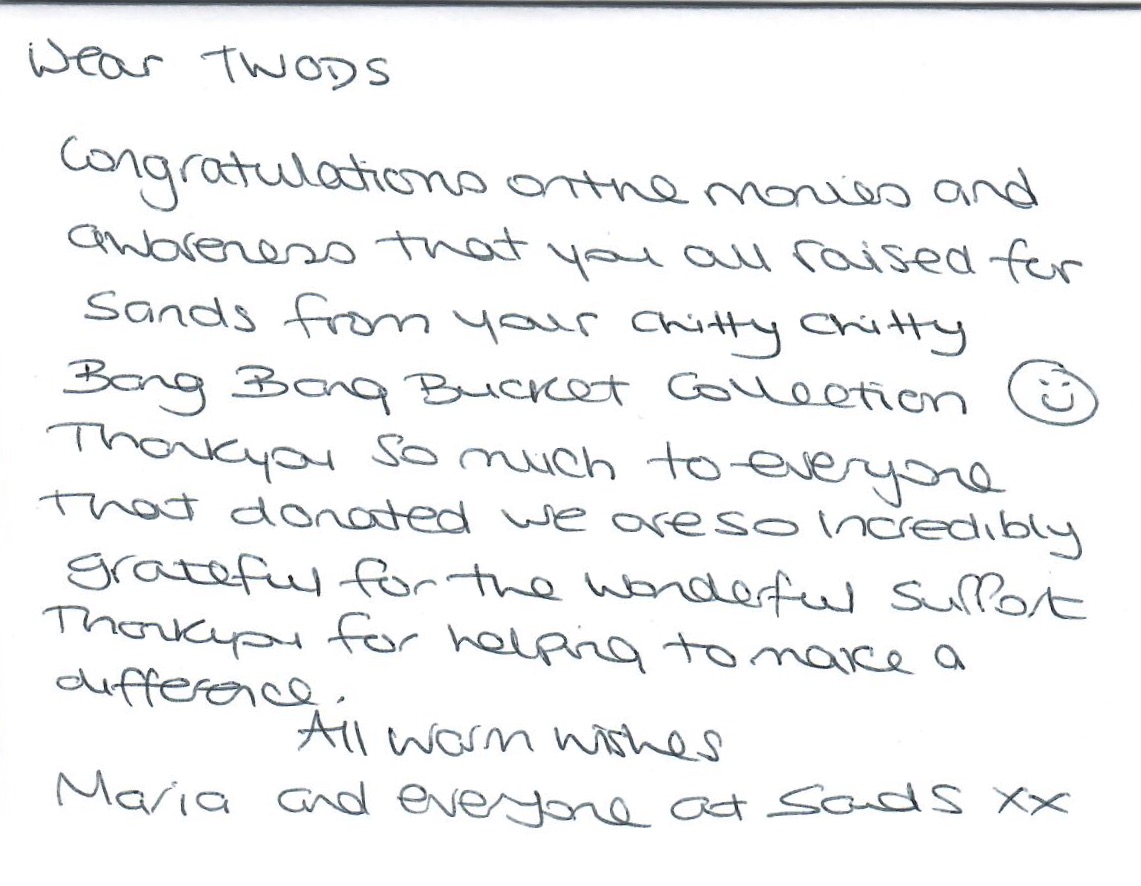 Dear TWODS
Congratulations on the monies and
awareness that you all raised for
Sands from your Chitty Chitty
Bang Bang Bucket Collection
Thankyou so much to everyone
that donated we are so incredibly
grateful for the wonderful support
Thankyou for helping to make a
difference.
All warm wishes
Maria and everyone at Sands xx